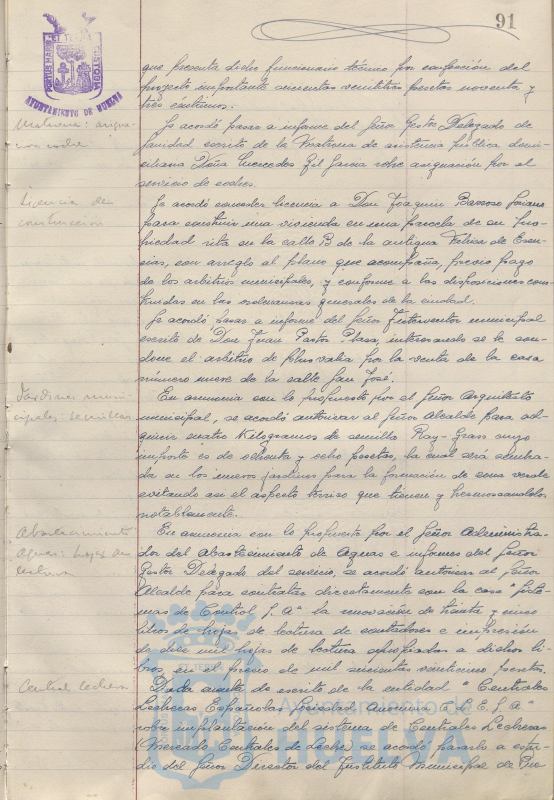 91
AYUNTAMIENTO DE HUELVA
que presenta dicho funcionario técnico por confección del
proyecto importante quinientas veintitrés pesetas noventa y
tres céntimos.
Matrona: asigna-
ción
Se acordó pasar a informe del Señor Gestor Delegado de
Sanidad escrito de la Matrona de asistencia pública domi-
ciliaria Doña Mercedes Gil García sobre asignación por el
servicio de
Licencia de
construcción
Se acordó conceder licencia a Don Joaquín Barroso Soriano
para construir una vivienda en una parcela de su pro-
piedad sita en la calle B de la antigua Fábrica de Esen-
cias, con arreglo al plano que acompaña, previo pago
de los arbitrios municipales, y conforme a las disposiciones con-
tenidas en las ordenanzas generales de la ciudad.
Se acordó pasar a informe del Señor Interventor municipal
escrito de Don Juan Pastor Plasa, interesando se le con-
done el arbitrio de plus valía por la venta de la casa
número nueve de la calle San José.
Jardines muni-
cipales: semillas
En armonía con lo propuesto por el Señor Arquitecto
municipal, se acordó autorizar al Señor Alcalde para ad-
quirir cuatro kilogramos de semilla Ray-Grass cuyo
importe es de ochenta y ocho pesetas, la cual será sembra-
da en los nuevos jardines para la formación de zona verde
evitando así el aspecto que tienen y hermoseándolos
notablemente.
Abastecimiento
aguas: hojas de
lectura
En armonía con lo propuesto por el Señor Administra-
dor del Abastecimiento de Aguas e informes del Señor
Gestor Delegado del servicio, se acordó autorizar al Señor
Alcalde para contratar directamente con la casa "Siste-
mas de Control S.A" la renovación de treinta y cinco
libros de hojas de lectura de contadores e impresión
de diez mil hojas de lectura apropiadas a dichos li-
bros, en el precio de mil quinientas veinticinco pesetas.
Central lechera
Dada cuenta de escrito de la entidad "Centrales
Lecheras Españolas, Sociedad Anónima C.L.E.S.A"
sobre implantación del sistema de Centrales Lecheras
(Mercado Centrales de Leche) se acordó pasarlo a estu-
dio del Señor Director del Instituto Municipal de Pue-
Ayuntamiento de
HUELVA